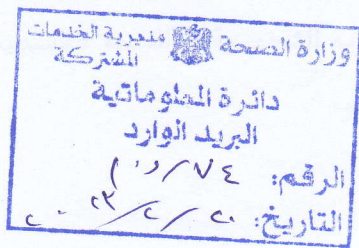 وزارة الصحة مديرية الخدمات
المشتركة
دائرة المعلوماتية
البريد الوارد
الرقم: ٧٤
التاريخ: ٢٠/٢/٢٠٢٣